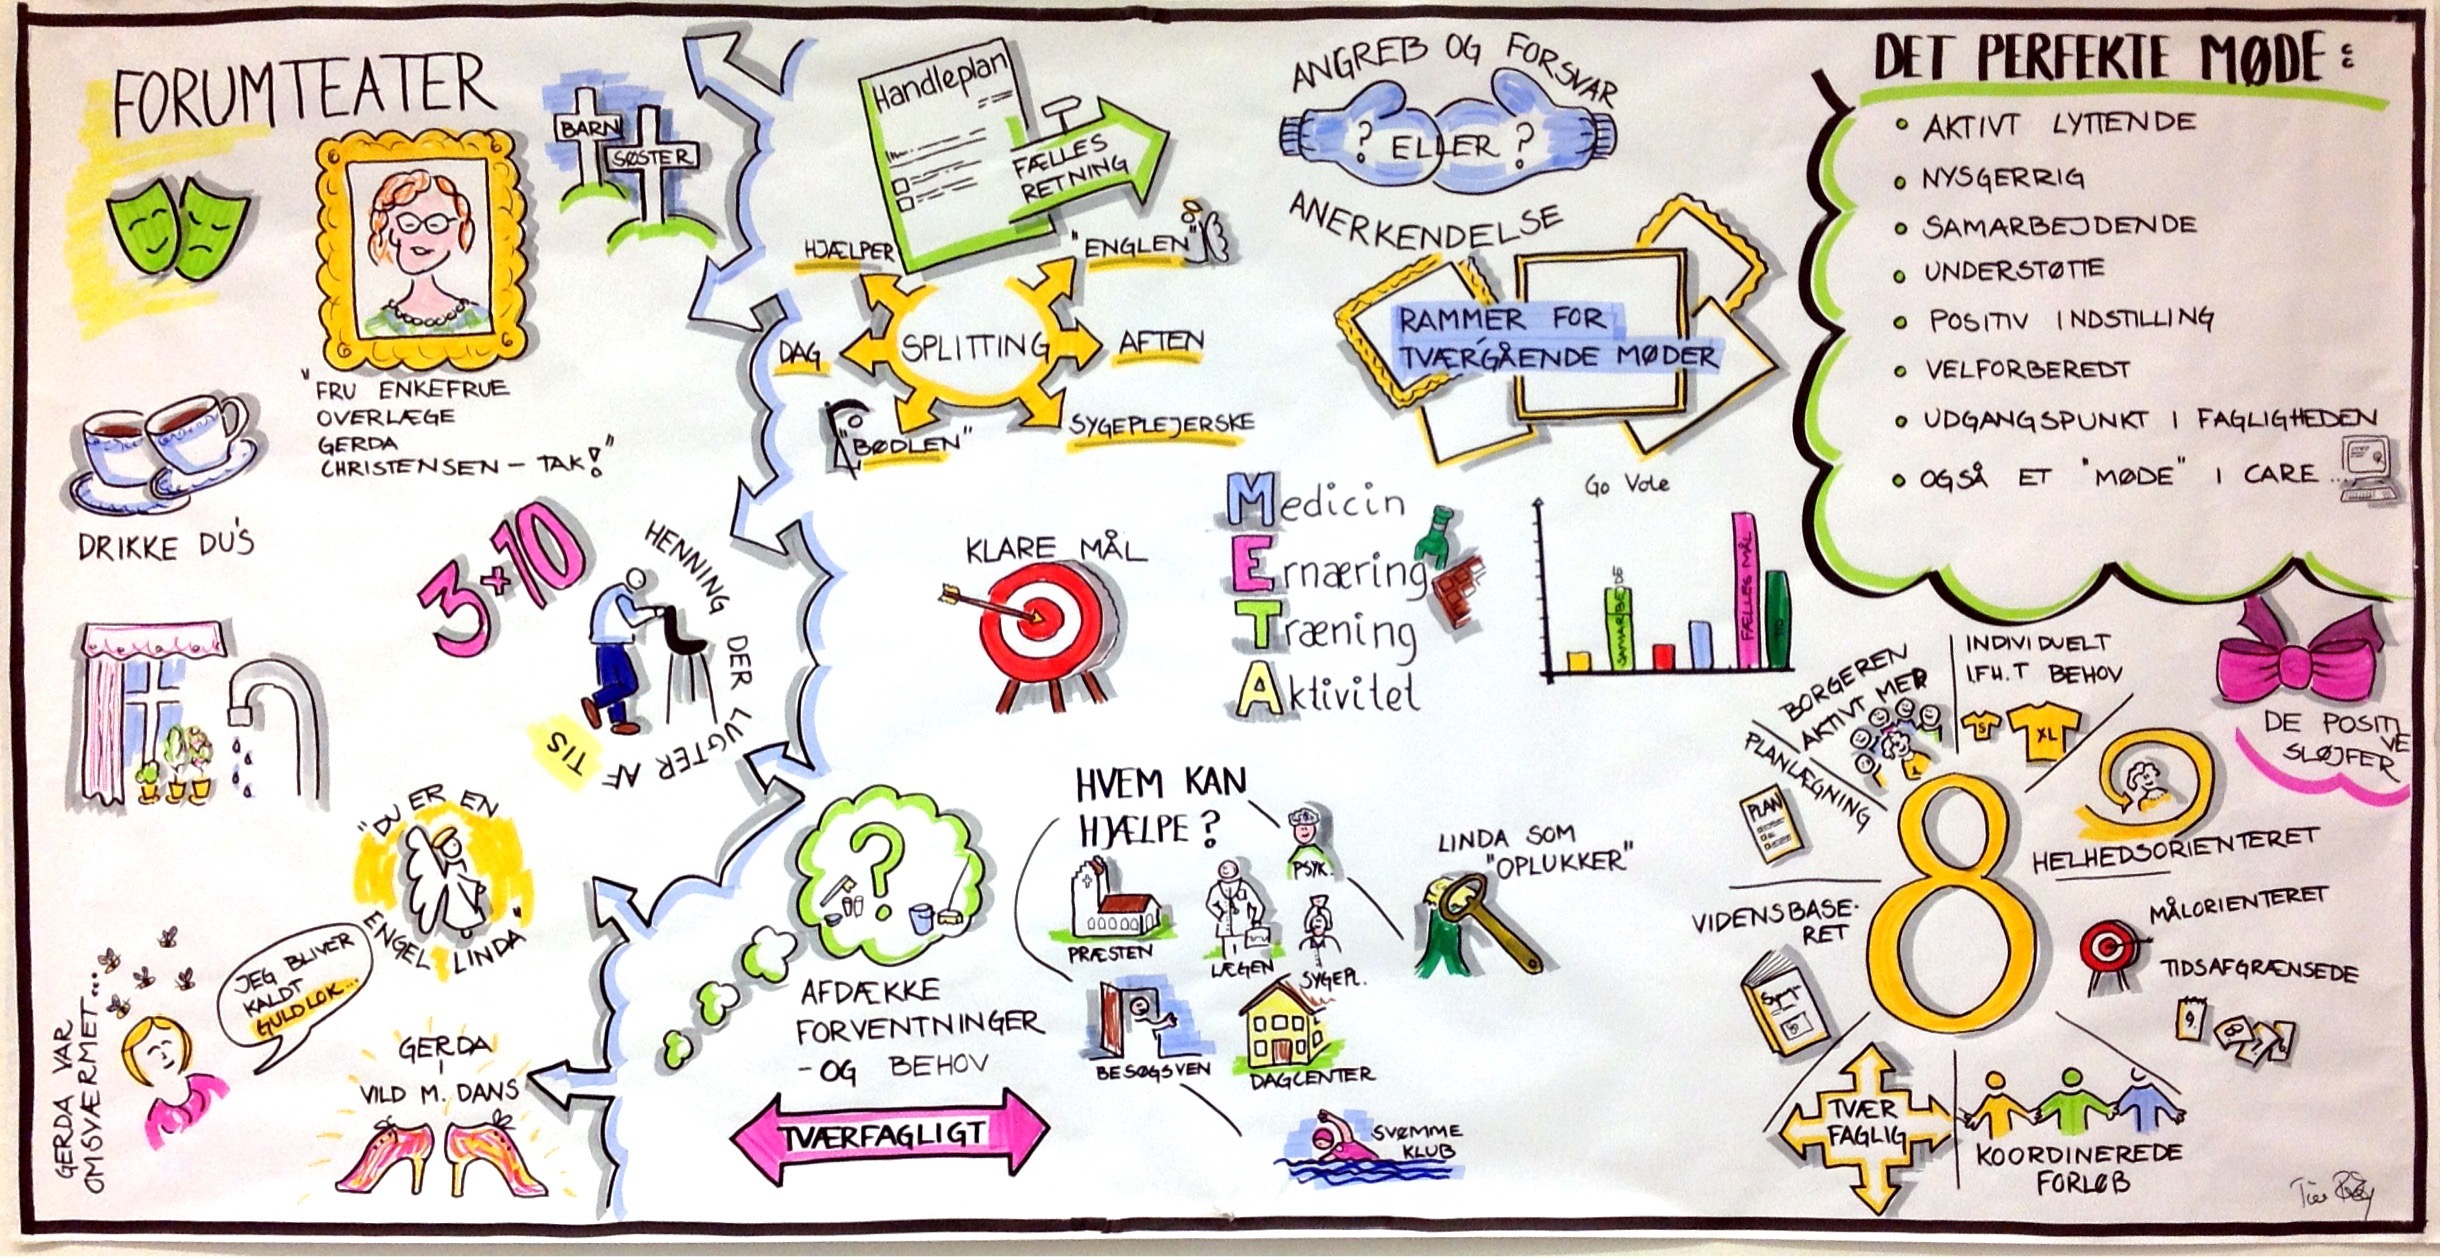 FORUMTEATER
BARN
SØSTER
"FRU ENKEFRUE
OVERLÆGE
GERDA
CHRISTENSEN - TAK!"
DRIKKE DU'S
3+10
HENNING DER LUGTER AF TIS
"DU ER EN
ENGEL LINDA"
JEG BLIVER
KALDT
GULDLOK...
GERDA VAR
OMSVÆRMET...
GERDA
I
VILD M. DANS
Handleplan
FÆLLES
RETNING
HJÆLPER
"ENGLEN"
DAG
SPLITTING
AFTEN
"BØDLEN"
SYGEPLEJERSKE
ANGREB OG FORSVAR
? ELLER ?
ANERKENDELSE
RAMMER FOR
TVÆRGÅENDE MØDER
KLARE MÅL
Medicin
Ernæring
Træning
Aktivitet
Go Vote
SAMARBEJD
FÆLLES MÅL
DET PERFEKTE MØDE:
• AKTIVT LYTTENDE
• NYSGERRIG
• SAMARBEJDENDE
• UNDERSTØTTE
• POSITIV INDSTILLING
• VELFORBEREDT
• UDGANGSPUNKT I FAGLIGHEDEN
• OGSÅ ET "MØDE" I CARE...
DE POSITIVE
SLØJFER
AFDÆKKE
FORVENTNINGER
- OG BEHOV
TVÆRFAGLIGT
HVEM KAN
HJÆLPE?
PSYK.
PRÆSTEN
LÆGEN
SYGEPL.
BESØGSVEN
DAGCENTER
SVØMME
KLUB
LINDA SOM
"OPLUKKER"
8
BORGEREN
AKTIVT MED
INDIVIDUELT
I.F.H.T BEHOV
S
XL
PLANLÆGNING
PLAN
HELHEDSORIENTERET
VIDENSBASE-
RET
MÅLORIENTERET
TIDSAFGRÆNSEDE
9.
8
7
TVÆR
FAGLIG
KOORDINEREDE
FORLØB